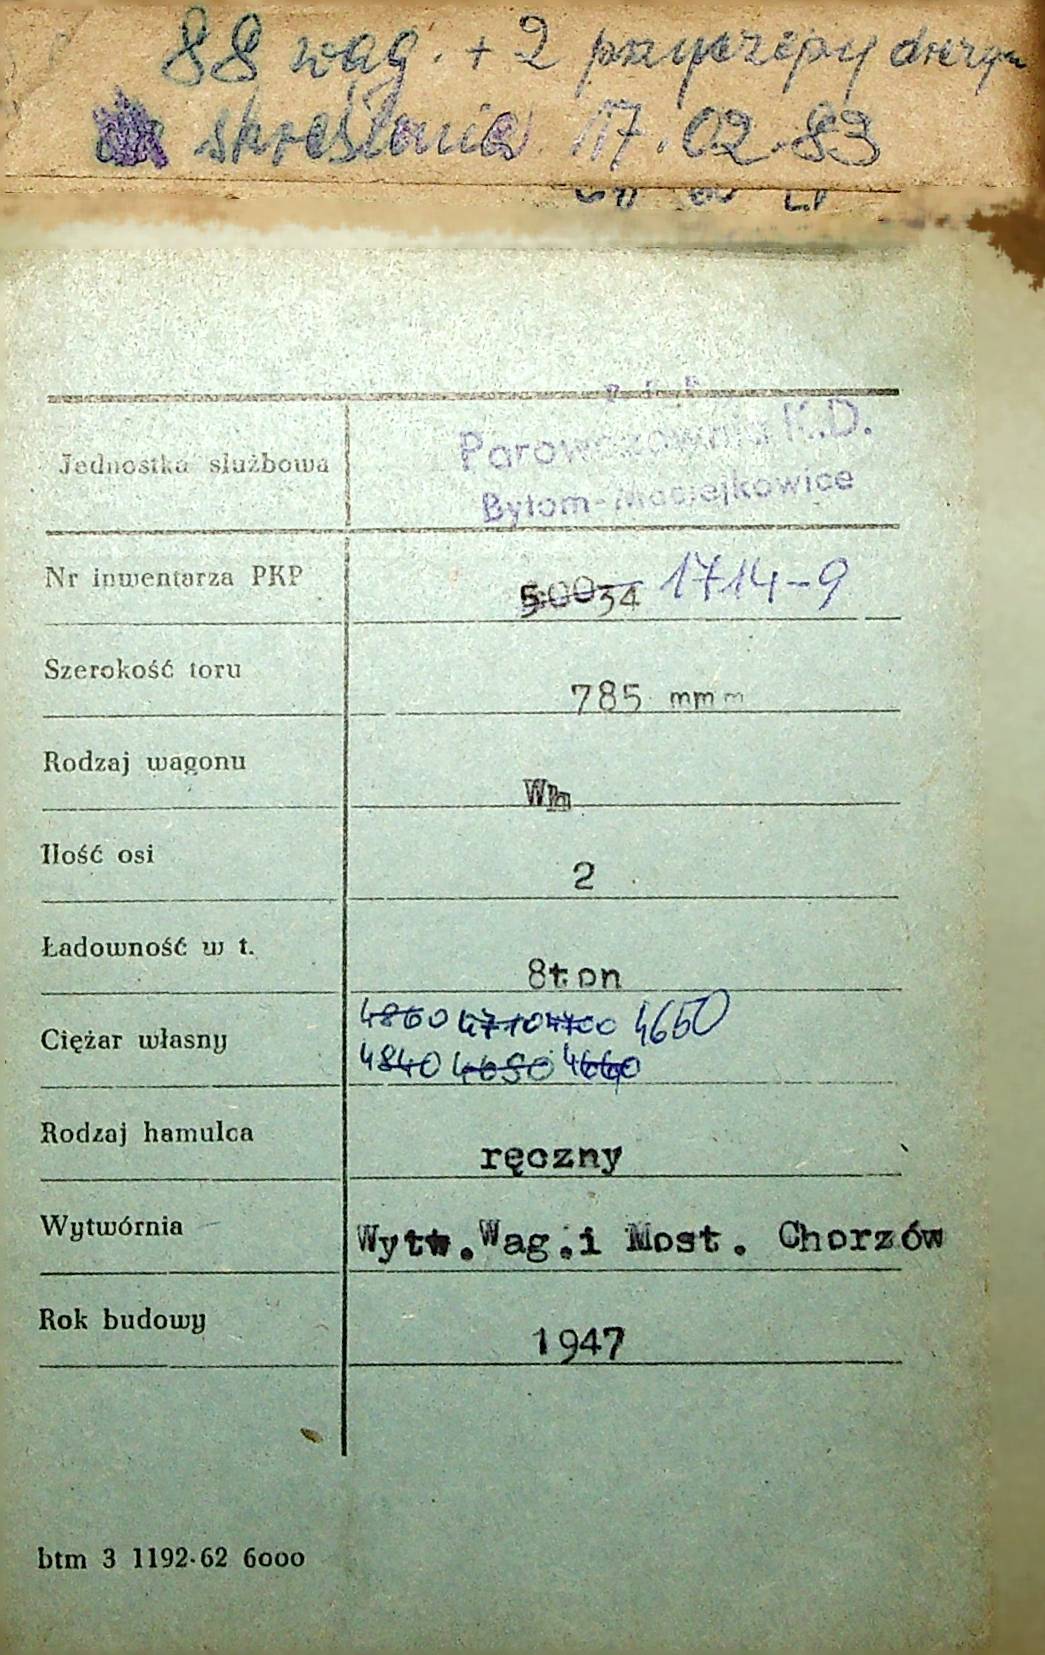 88 wag. + 2 przyczepy
skreślenia 17.02.83
P K P
Jednostka służbowa Parowozownia K.D.
Bytom-Maciejkowice
Nr inwentarza PKP 50034 1714-9
Szerokość toru 785 mmm
Rodzaj wagonu
Ilość osi 2
Ładowność w t. 8ton
4860 4710 4700 4650
Ciężar własny
4840 4680 4660
Rodzaj hamulca ręczny
Wytwórnia Wytw.Wag.i Most. Chorzów
Rok budowy 1947
btm 3 1192-62 6000